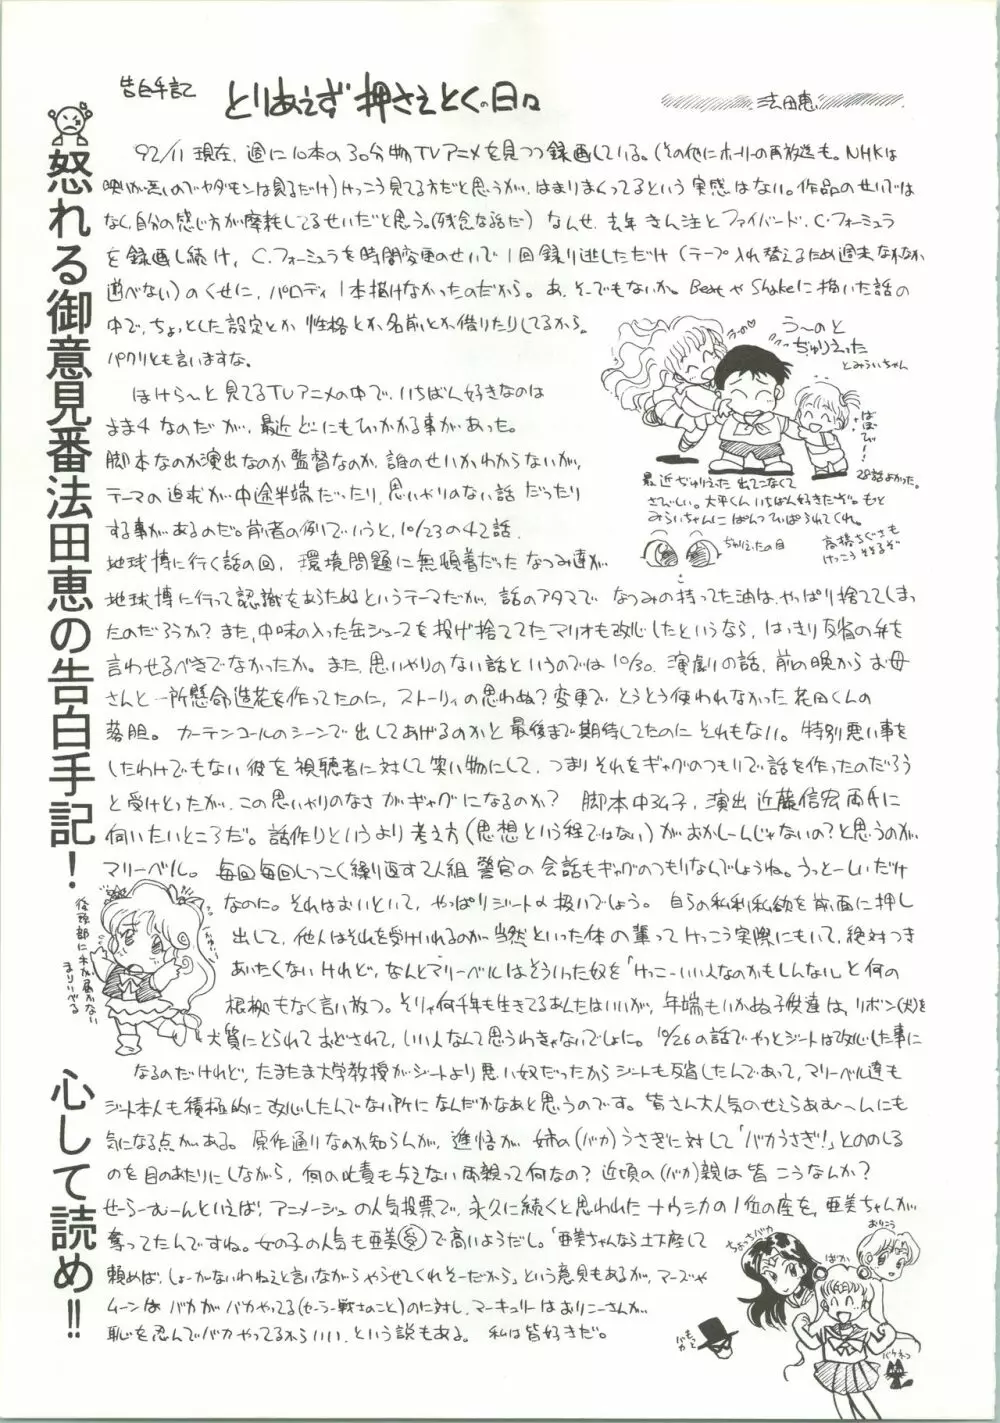 告白手記
とりあえず押さえとくの日々
法田恵
怒れる御意見番法田恵の告白手記!
心して読め!!
92/11現在、週に10本の30分物TVアニメを見つつ録画している。(その他にホーリーの再放送も。NHKは
映りが悪いのでヤダモンは見るだけ)けっこう見てる方だと思うが、はまりまくってるという実感はない。作品のせいでは
なく、自分の感じ方が摩耗してるせいだと思う。(残念な話だ)なんせ、去年きん注とファイバード、C・フォーミュラ
を録画し続け、C・フォーミュラを時間変更のせいで1回録り逃しただけ(テープ入れ替えるため週末なかなか
遊べない)のくせに、パロディ1本描けなかったのだから。あ、そーでもないか。BeatやShakeに描いた話の
中で、ちょっとした設定とか性格とか名前とか借りたりしてるから。
パクリとも言いますな。
う〜のと
ぢゅりえった
とみういちゃん
ぱぱびー!
28話よかった。
最近ぢゅりえった出てこなくて
さびしい。大平くんいちばん好きだぞ。もと
みらいちゃんにぱんつひっぱられてくれ。
ぢゅりえったの目
高橋ちぐさも
けっこうそそるぞ
ほけら〜と見てるTVアニメの中で、いちばん好きなのは
まま4なのだが、最近どーにもひっかかる事があった。
脚本なのか演出なのか監督なのか、誰のせいかわからないが、
テーマの追求が中途半端だったり、思いやりのない話だったり
する事があるのだ。前者の例でいうと、10/23の42話、
地球博に行く話の回、環境問題に無頓着だったなつみ達が
地球博に行って認識をあらためるというテーマだが、話のアタマでなつみの持ってた油は、やっぱり捨ててしまっ
たのだろうか?また、中味の入った缶ジュースを投げ捨ててたマリオも改心したというなら、はっきり反省の弁を
言わせるべきでなかったか。また、思いやりのない話というのでは10/30、演劇の話、前の晩からお母
さんと一所懸命造花を作ってたのに、ストーリィの思わぬ?変更で、とうとう使われなかった花田くんの
落胆。カーテンコールのシーンで出してあげるのかと最後まで期待してたのにそれもない。特別悪い事を
したわけでもない彼を視聴者に対して笑い物にして、つまりそれをギャグのつもりで話を作ったのだろう
と受けとったが、この思いやりのなさがギャグになるのか?脚本中弘子、演出近藤信宏両氏に
伺いたいところだ。話作りというより考え方(思想という程ではない)がおかしーんじゃないの?と思うのが、
マリーベル。毎回毎回しつこく繰り返す2人組警官の会話もギャグのつもりなんでしょうね。うっとーしいだけ
なのに。それはおいといて、やっぱりジートの扱いでしょう。自らの私利私欲を前面に押し
出して、他人はそれを受けいれるのが当然といった体の輩ってけっこう実際にもいて、絶対つき
あいたくないけれど、なんとマリーベルはそういった奴を「けっこーいい人なのかもしんない」と何の
根拠もなく言い放つ。そりゃ何千年も生きてるあんたはいいが、年端もいかぬ子供達は、リボン(犬)を
犬質にとられておどされて、いい人なんて思うわきゃないでしょに。10/26の話でやっとジートは改心した事に
なるのだけれど、たまたま大学教授がジートより悪い奴だったからジートも反省したんであって、マリーベル達も
ジート本人も積極的に改心したんでない所になんだかなあと思うのです。皆さん大人気のせえらあむ〜んにも
気になる点がある。原作通りなのか知らんが、進悟が姉の(バカ)うさぎに対して「バカうさぎ!」とののしる
のを目のあたりにしながら、何の叱責も与えない両親って何なの?近頃の(バカ)親は皆こうなんか?
せーらーむーんといえば、アニメージュの人気投票で、永久に続くと思われたナウシカの1位の座を、亜美ちゃんが
奪ってたんですね。女の子の人気も亜美受で高いようだし。「亜美ちゃんなら土下座して
頼めば、しょーがないわねえと言いながらやらせてくれそーだから」という意見もあるが、マーズや
ムーンはバカがバカやってる(セーラー戦士のこと)のに対し、マーキュリーはおりこーさんが
恥を忍んでバカやってるからいい、という説もある。私は皆好きだ。
後頭部に木が届かない
まりいべる
ちょっとバカ
ばか
おりこう
もっと
バカ
バケネコ